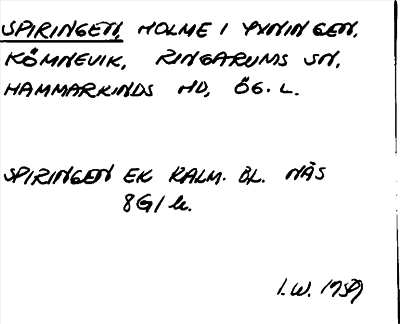 SPIRINGEN, HOLME I YXNINGEN,
KÖMNEVIK, RINGARUMS SN,
HAMMARKINDS HD, ÖG. L.
SPIRINGEN EK KALM. BL. NÄS
8G/k.
I.W. 1959